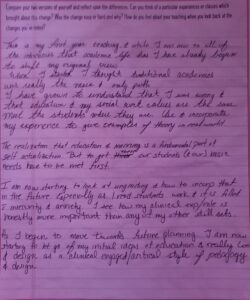 Compare your two versions of yourself and reflect upon the differences. Can you think of a particular experience or classes which
brought about this change? Was the change easy or hard and why? How do you feel about your teaching when you look back at the
changes you've noted?
This is my first year teaching & while I am new to all of
the nuances that academic life has I have already begun
to shift my original views.
When I started I thought traditional academics
was really the main & only path.
I have grown to understand that I was wrong &
that education & my social work values are the same.
Meet the students where they are. Use & incorporate
my experience to give examples of theory in realworld.
The realization that education & is a fundamental part of
self actualization. But to get our students (&
needs have to be met first.
I am now starting to look at ungrading & how to incorp that
in the future. Especially as I read students work & it is filled
I see how my clinical exp/role is
honestly more important than any of my other skill sets.
As I begin to move towards future planning, I am now
starting to let go of my initial ideas of education & really
& design as a clinical engaged style of pedagogy
& design.